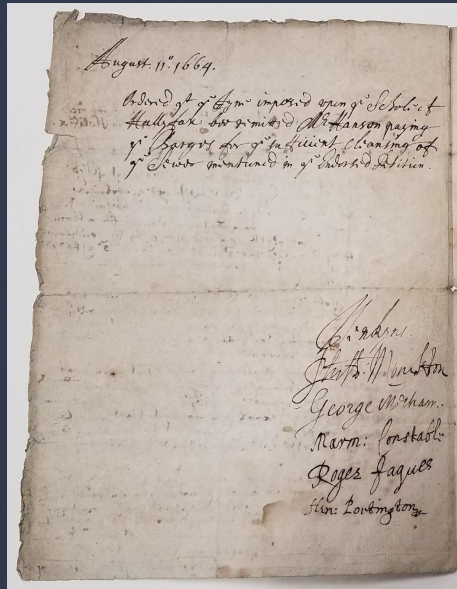 August. 11º. 1664.
Ordered yt ye fyne imposed upon ye Schole of
Hallyfax bee remitted Mr Hanson paying
ye Charges for ye sufficient Cleansing of
ye Sewer mentioned in ye Endorsed Petition
Monckton
George
Marm: Constable
Roger Jaques
Hen: Portington